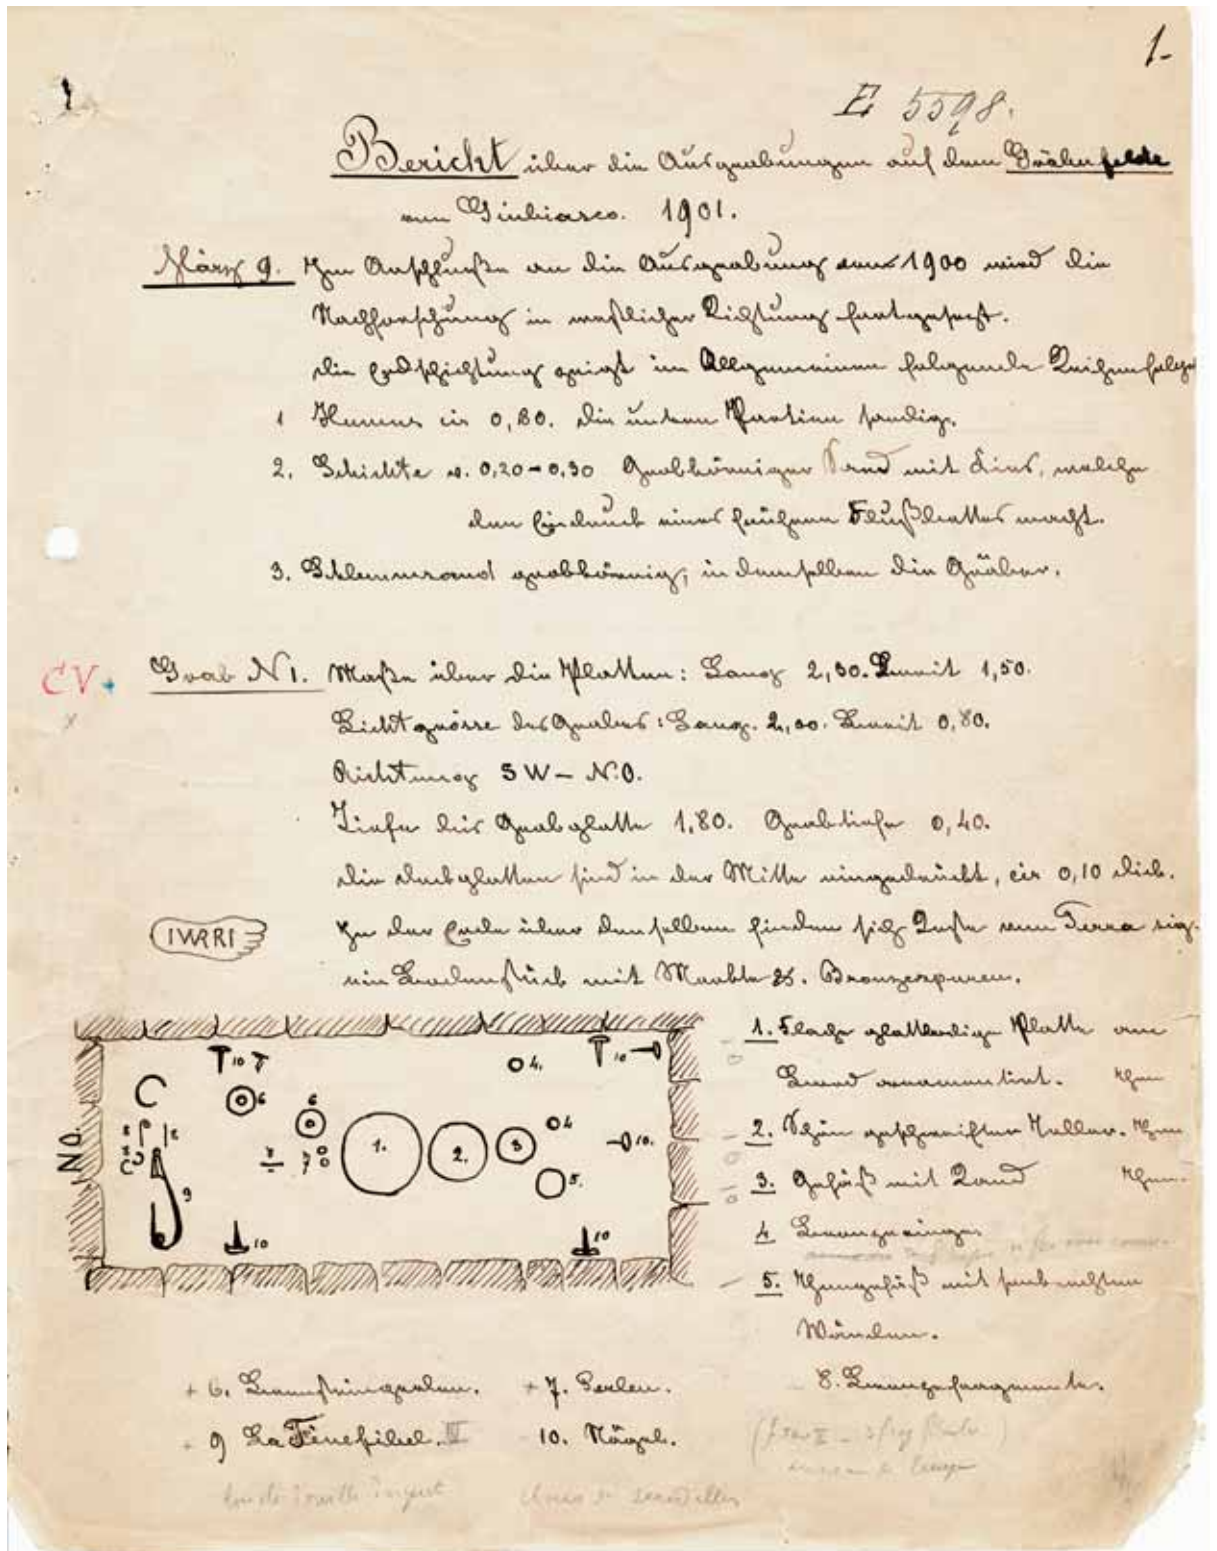 1-
E 5598.
Bericht über die Ausgrabungen auf dem Gräberfelde
von Giubiasco. 1901.
März 9. Im Anschluße an die Ausgrabung von 1900 wird die
Nachforschung in westlicher Richtung fortgesetzt.
Die Erdschichtung zeigt im Allgemeinen folgende Reihenfolge
1 Humus cir 0,80. Die untern Partien sandig.
2. Schichte v. 0,20-0,30 Grobkörniger Sand mit Kies, welche
den Eindruck eines frühern Flußbettes macht.
3. Schlemmsand grobkörnig, in demselben die Gräber.
CV
Grab N 1. Maße über die Platten: Lang 2,30. Breit 1,50.
Lichtgrösse des Grabes: Lang. 2,00. Breit 0,80.
Richtung SW – N.O.
Tiefe der Grabplatte 1,80. Grabtiefe 0,40.
Die Deckplatten sind in der Mitte eingedrückt, cir 0,10 dick.
In der Erde über denselben finden sich Reste von Terra sig.
ein Bodenstück mit Marke &. Bronzespuren.
NO.
10
10
4.
6
6
1.
2.
3
4
5.
10.
7
8
9
10
10
1. Flache glattrandige Platte am
Rand ornamentirt. Thon
2. Schön geschweifter Teller. Thon
3. Gefäß mit Rand Thon.
4 Bronzeringe.
5. Thongefäß mit senkrechten
Wänden.
6. Bernsteinperlen. 7. Perlen. 8. Bronzefragmente.
9 La Tènefibel. III 10. Nägel.